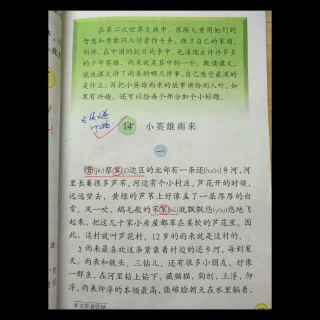 在第二次世界大战中，苏联儿童用他们的
智慧和勇敢同入侵者作斗争，保卫自己的家园。
同样，在中国的抗日战争中，也涌现出许许多多
的少年英雄，雨来就是其中的一个。默读课文，
说说课文讲了雨来的哪几件事，自己感受最深的
是什么。再把小英雄雨来的故事讲给别人听。如
果有兴趣，还可以给每个部分加个小标题。
14
小英雄雨来
一
晋(jìn)察冀(jì)边区的北部有一条还(huán)乡河，河
里长着很多芦苇。河边有个小村庄。芦花开的时候，
远远望去，黄绿的芦苇上好像盖了一层厚厚的白
雪。风一吹，鹅毛般的苇絮(xù)就飘飘悠(yōu)悠地飞
起来，把这几十家小房屋都罩在柔软的芦花里。因
此，这村就叫芦花村。12岁的雨来就是这村的。
雨来最喜欢这条紧靠着村边的还乡河。每到夏
天，雨来和铁头、三钻儿，还有很多小朋友，好像
一群鱼，在河里钻上钻下，藏猫猫，狗刨，立浮，仰浮。
雨来仰浮的本领最高，能够脸朝天在水里躺着，
本文作者管桦